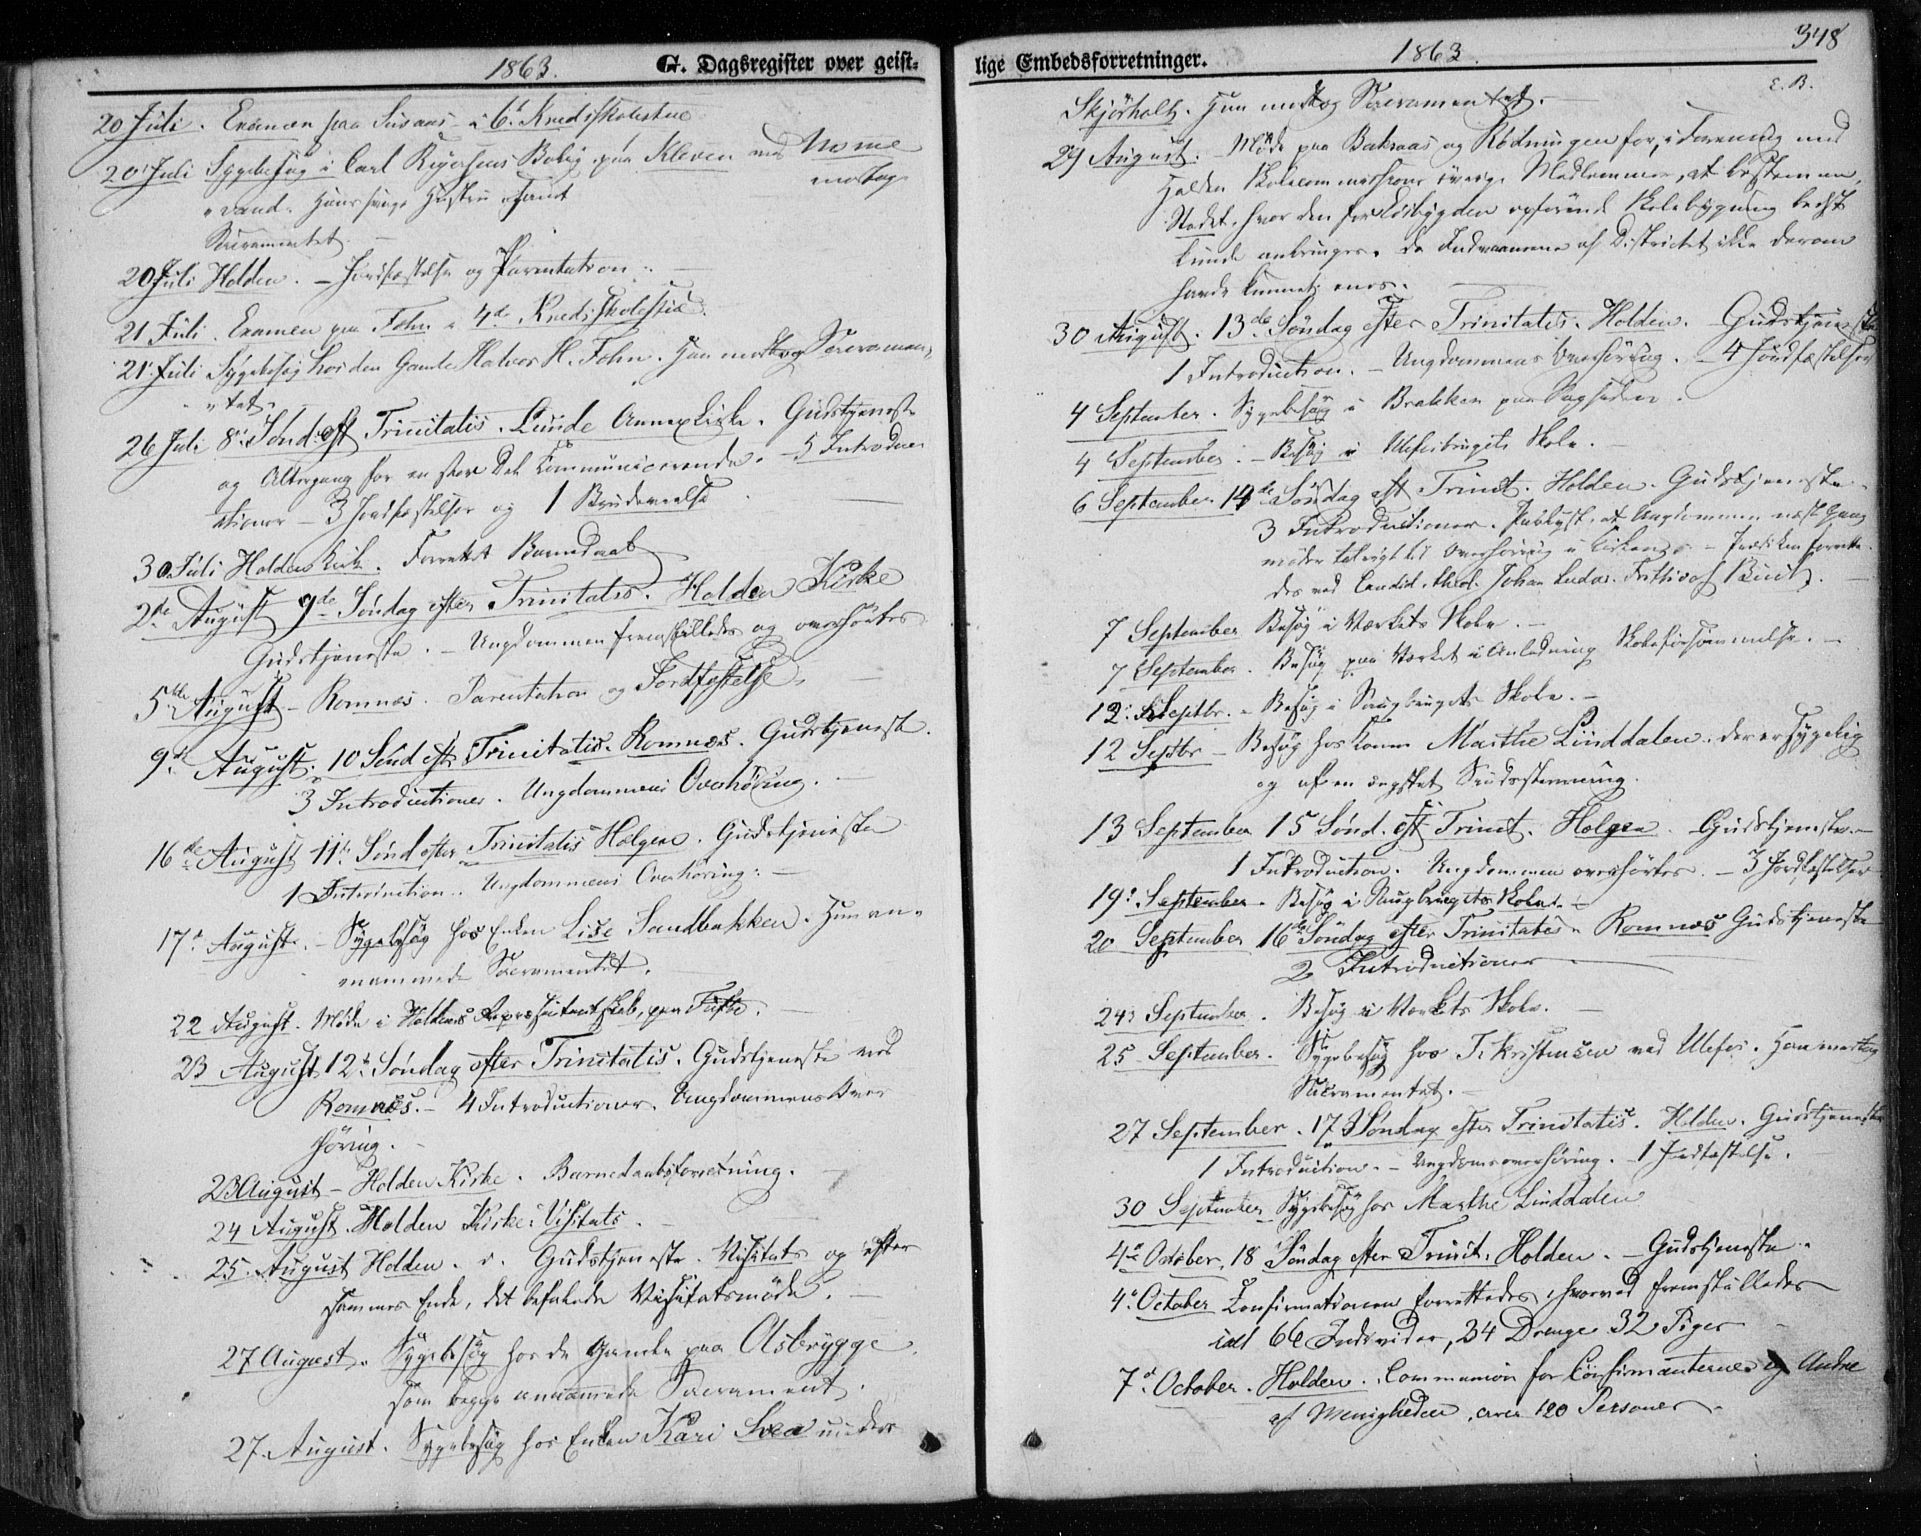 1863. G. Dagsregister over geist-
20 Juli. Examen paa Susaas i 6te Kredsskolestue
20 Juli Sygebesøg i Carl Bolig paa Kleven ved Nome
vand. Hans syge Hustru modtog
Sacramentet. —
20 Juli Holden. — Jordfæstelse og Parentation. —
21 Juli. Examen paa Fæhn i 4de Kredsskolestue.
21 Juli Sygebesøg hos den Gamle Halvor H. Fæhn. Han modtog Sacramen-
tet.
26 Juli 8de Sønd. eft Trinitatis. Lunde Annexkirke. Gudstjeneste
og Altergang for en stor Del Communicerende. — 5 Introduc-
ationer — 3 Jordfæstelser og 1 Brudevielse
30 Juli Holden Kirke. Forrettet Barnedaab
2de August 9de Søndag efter Trinitatis. Holden Kirke
Gudstjeneste. — Ungdommen fremstilledes og overhørtes
5te August — Romnæs. Parentation og Jordfæstelse. —
9de August. 10 Sønd eft Trinitatis. Romnæs. Gudstjeneste.
3 Introductioner. Ungdommens Overhøring. —
16de August 11te Sønd efter Trinitatis Helgen. Gudstjeneste
1 Introduction. Ungdommens Overhøring. —
17de August. — Sygebesøg hos Enken Lise Sandbakken. Hun an-
nammede Sacramentet.
22 August. Møde i Holdens Repræsentantskab, paa
23 August 12te Søndag efter Trinitatis. Gudstjeneste ved
Romnæs. — 4 Introductioner. Ungdommens Over
høring. —
23 August — Holden Kirke. Barnedaabsforretning. —
24 August. Holden Kirke: Visitats. —
25 August Holden. Gudstjeneste. Visitats og efter
sammes Ende, det befalede Visitatsmøde. —
27 August. Sygebesøg hos de Gamle paa Olsbrygge,
som begge annammede Sacrament.
27. August. Sygebesøg hos Enken Kari Svea under
lige Embedsforretninger. 1863. 348
E. B.
Skjørholt. Hun modtog Sacramentet. —
29 August. — Møde paa Bakraas og Rødningen for, i Forening med
Holden Skolecommissions øvrige Medlemmer, at bestemme
Stedet, hvor den for opførende Skolebygning bedst
kunde anbringes, da Indvaanerne af Districtet ikke derom
havde kunnet enes.
30 August. 13de Søndag efter Trinitatis. Holden. Gudstjeneste
1 Introduction. — Ungdommens Overhøring. — 4 Jordfæstelser
4 September. Sygebesøg i Brakken paa Sagsiden.
4 September. — Besøg i Ulefosbrugets Skole. —
6 September 14de Søndag eft Trinit. Holden. Gudstjeneste.
3 Introductioner. Publyst, at Ungdommen næste Gang
møder talrigt til Overhøring i Kirken. — Prædiken forrette-
des ved Candid. theol. Johan Ludv. Frithiof
7 September Besøg i Værkets Skole. —
7 September. Besøg paa Værket i Anledning Skoleforsømmelse. —
12. Septbr. — Besøg i Saugbrugets Skole. —
12 Septbr — Besøg hos Marthe Linddalen, der er sygelig
og af en ængstet Sindsstemning.
13 September 15 Sønd. eft Trinit. Helgen. Gudstjeneste. —
1 Introduction. Ungdommen overhørtes. — 3 Jordfæstelser
19. September. Besøg i Saugbrugets Skole. —
20 September 16de Søndag efter Trinitatis. Romnæs Gudstjeneste
2 Introductioner
24 September. Besøg i Værkets Skole. —
25 September. Sygebesøg hos T. Kristensen ved Ulefos. Han modtog
Sacramentet. —
27 September. 17 Søndag efter Trinitatis. Holden. Gudstjeneste
1 Introduction. — Ungdomsoverhøring. — 1 Jordfæstelse.
30 September. Sygebesøg hos Marthe Linddalen
4de October. 18 Søndag efter Trinit. Holden. — Gudstjeneste.
4de October Confirmationen forrettedes, hvorved fremstilledes
ialt 66 Individer, 34 Drenge 32 Piger
7de October. Holden. Communion for Confirmanterne og Andre
af Menigheden, circa 120 Personer.